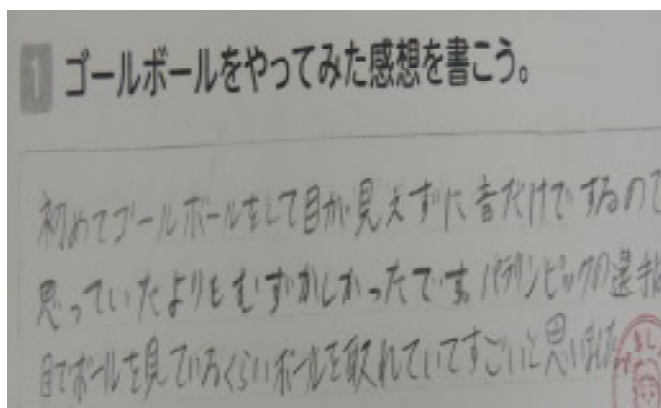 1 ゴールボールをやってみた感想を書こう。
初めてゴールボールをして目が見えずに音だけでするので
思っていたよりもむずかしかったです。パラリンピックの選手
目でボールを見ているくらいボールを取れていてすごいと思いました